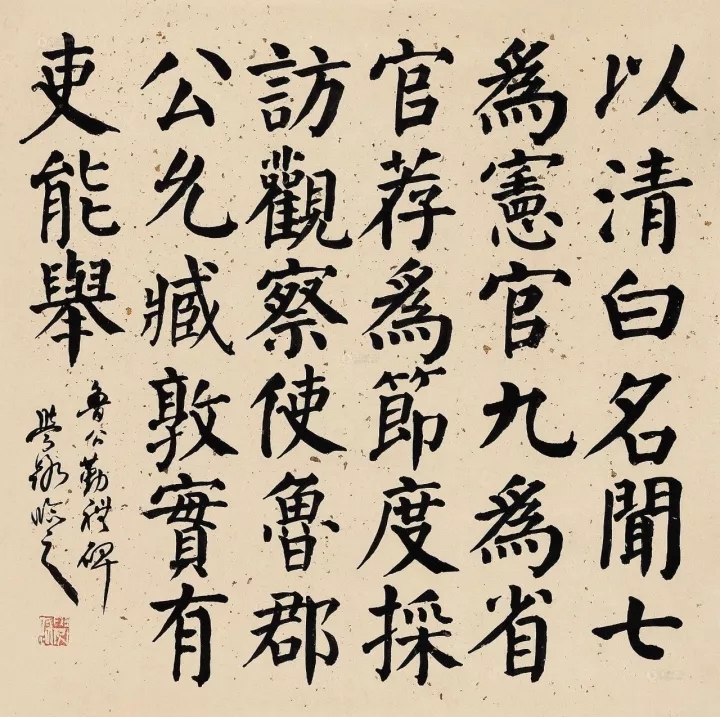 以清白名聞七
爲憲官九爲省
官荐爲節度採
訪觀察使魯郡
公允臧敦實有
吏能舉
魯公勤禮碑
臨之